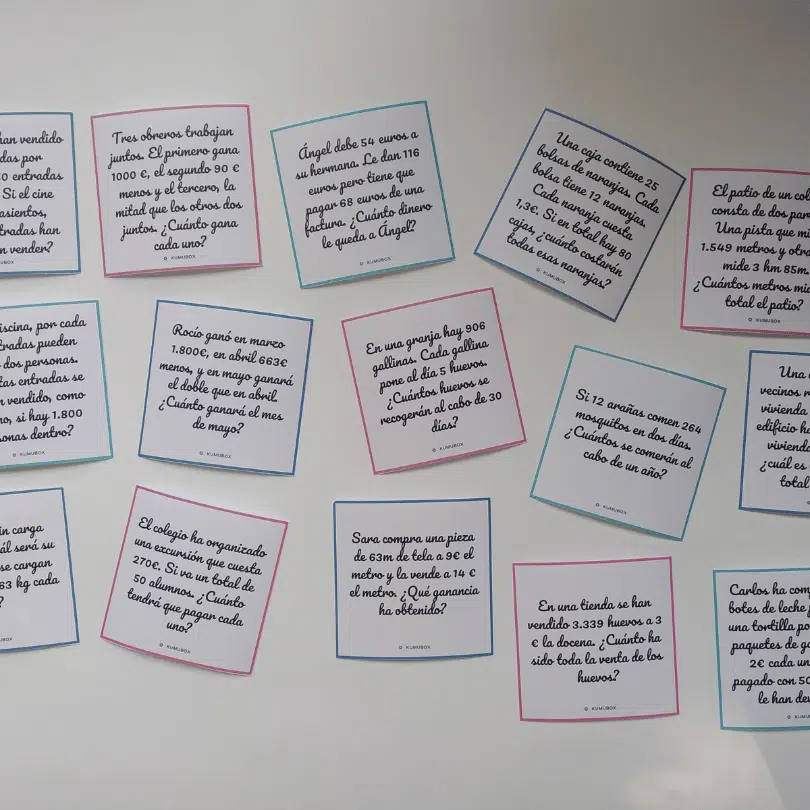 han vendido
das por
0 entradas
Si el cine
asientos,
tradas han
n vender?
KUMUBOX
Tres obreros trabajan
juntos. El primero gana
1000 €, el segundo 90 €
menos y el tercero, la
mitad que los otros dos
juntos. ¿Cuánto gana
cada uno?
KUMUBOX
Ángel debe 54 euros a
su hermana. Le dan 116
euros pero tiene que
pagar 68 euros de una
factura. ¿Cuánto dinero
le queda a Ángel?
KUMUBOX
Una caja contiene 25
bolsas de naranjas. Cada
bolsa tiene 12 naranjas.
Cada naranja cuesta
1,3€. Si en total hay 80
cajas, ¿cuánto costarán
todas esas naranjas?
KUMUBOX
El patio de un col
consta de dos par
Una pista que mi
1.549 metros y otra
mide 3 hm 85m.
¿Cuántos metros mid
total el patio?
KUMUBOX
iscina, por cada
tradas pueden
dos personas.
tas entradas se
n vendido, como
no, si hay 1.800
sonas dentro?
KUMUBOX
Rocío ganó en marzo
1.800€, en abril 663€
menos, y en mayo ganará
el doble que en abril.
¿Cuánto ganará el mes
de mayo?
KUMUBOX
En una granja hay 906
gallinas. Cada gallina
pone al día 5 huevos.
¿Cuántos huevos se
recogerán al cabo de 30
días?
KUMUBOX
Si 12 arañas comen 264
mosquitos en dos días.
¿Cuántos se comerán al
cabo de un año?
KUMUBOX
Una
vecinos
vivienda
edificio ha
vivienda
¿cuál es
total
in carga
ál será su
se cargan
63 kg cada
?
KUMUBOX
El colegio ha organizado
una excursión que cuesta
270€. Si va un total de
50 alumnos. ¿Cuánto
tendrá que pagar cada
uno?
KUMUBOX
Sara compra una pieza
de 63m de tela a 9€ el
metro y la vende a 14 €
el metro. ¿Qué ganancia
ha obtenido?
KUMUBOX
En una tienda se han
vendido 3.339 huevos a 3
€ la docena. ¿Cuánto ha
sido toda la venta de los
huevos?
KUMUBOX
Carlos ha com
botes de leche
una tortilla po
paquetes de ga
2€ cada un
pagado con 50
le han dev
KUMUB